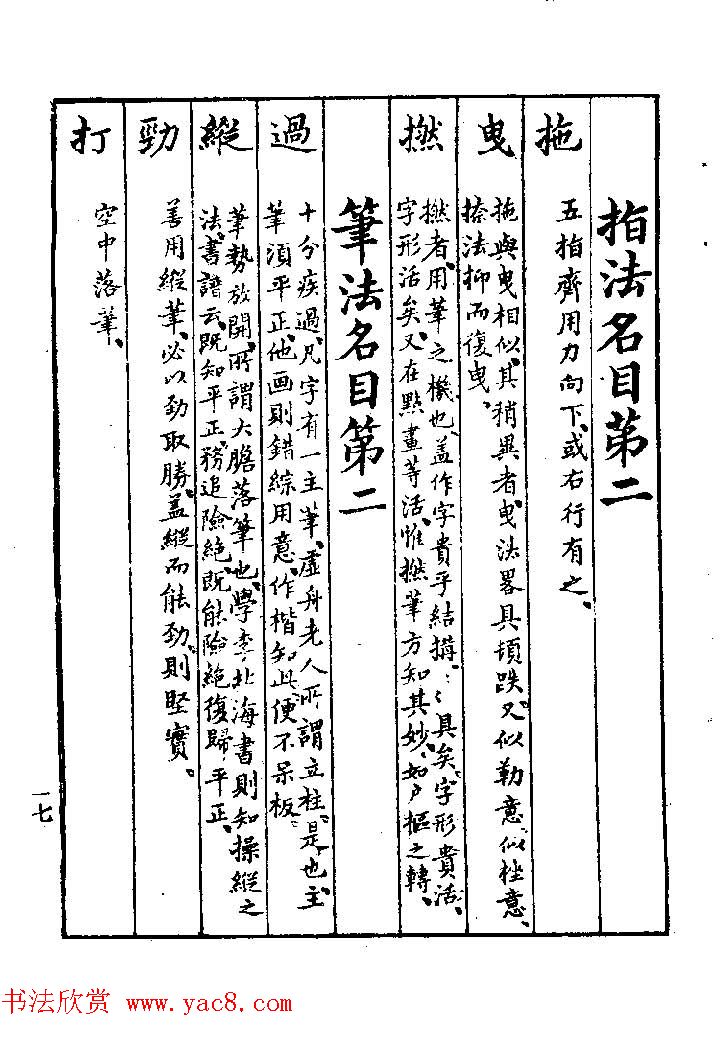 指法名目苐二
拖
五指齊用力向下、或右行有之、
曳
拖與曳相似、其稍異者、曳法畧具頓跌、又似勒意、似挫意、
捺法抑而復曳、
撚
撚者、用筆之機也、盖作字貴乎結搆、〻具矣、字形貴活、
字形活矣、又在點畫等活、惟撚筆方知其妙、如戶樞之轉、
筆法名目第二
過
十分疾過、凡字有一主筆、虛舟老人所謂立柱、是也、主
筆須平正、他画則錯綜用意、作楷知此、便不呆板、
縱
筆勢放開、所謂大膽落筆也、學李北海書則知操縱之
法、書譜云、既知平正、務追險絶、既能險絶、復歸平正、
勁
善用縱筆、必以勁取勝、盖縱而能勁、則堅實。
打
空中落筆、
一七
书法欣赏 www.yac8.com